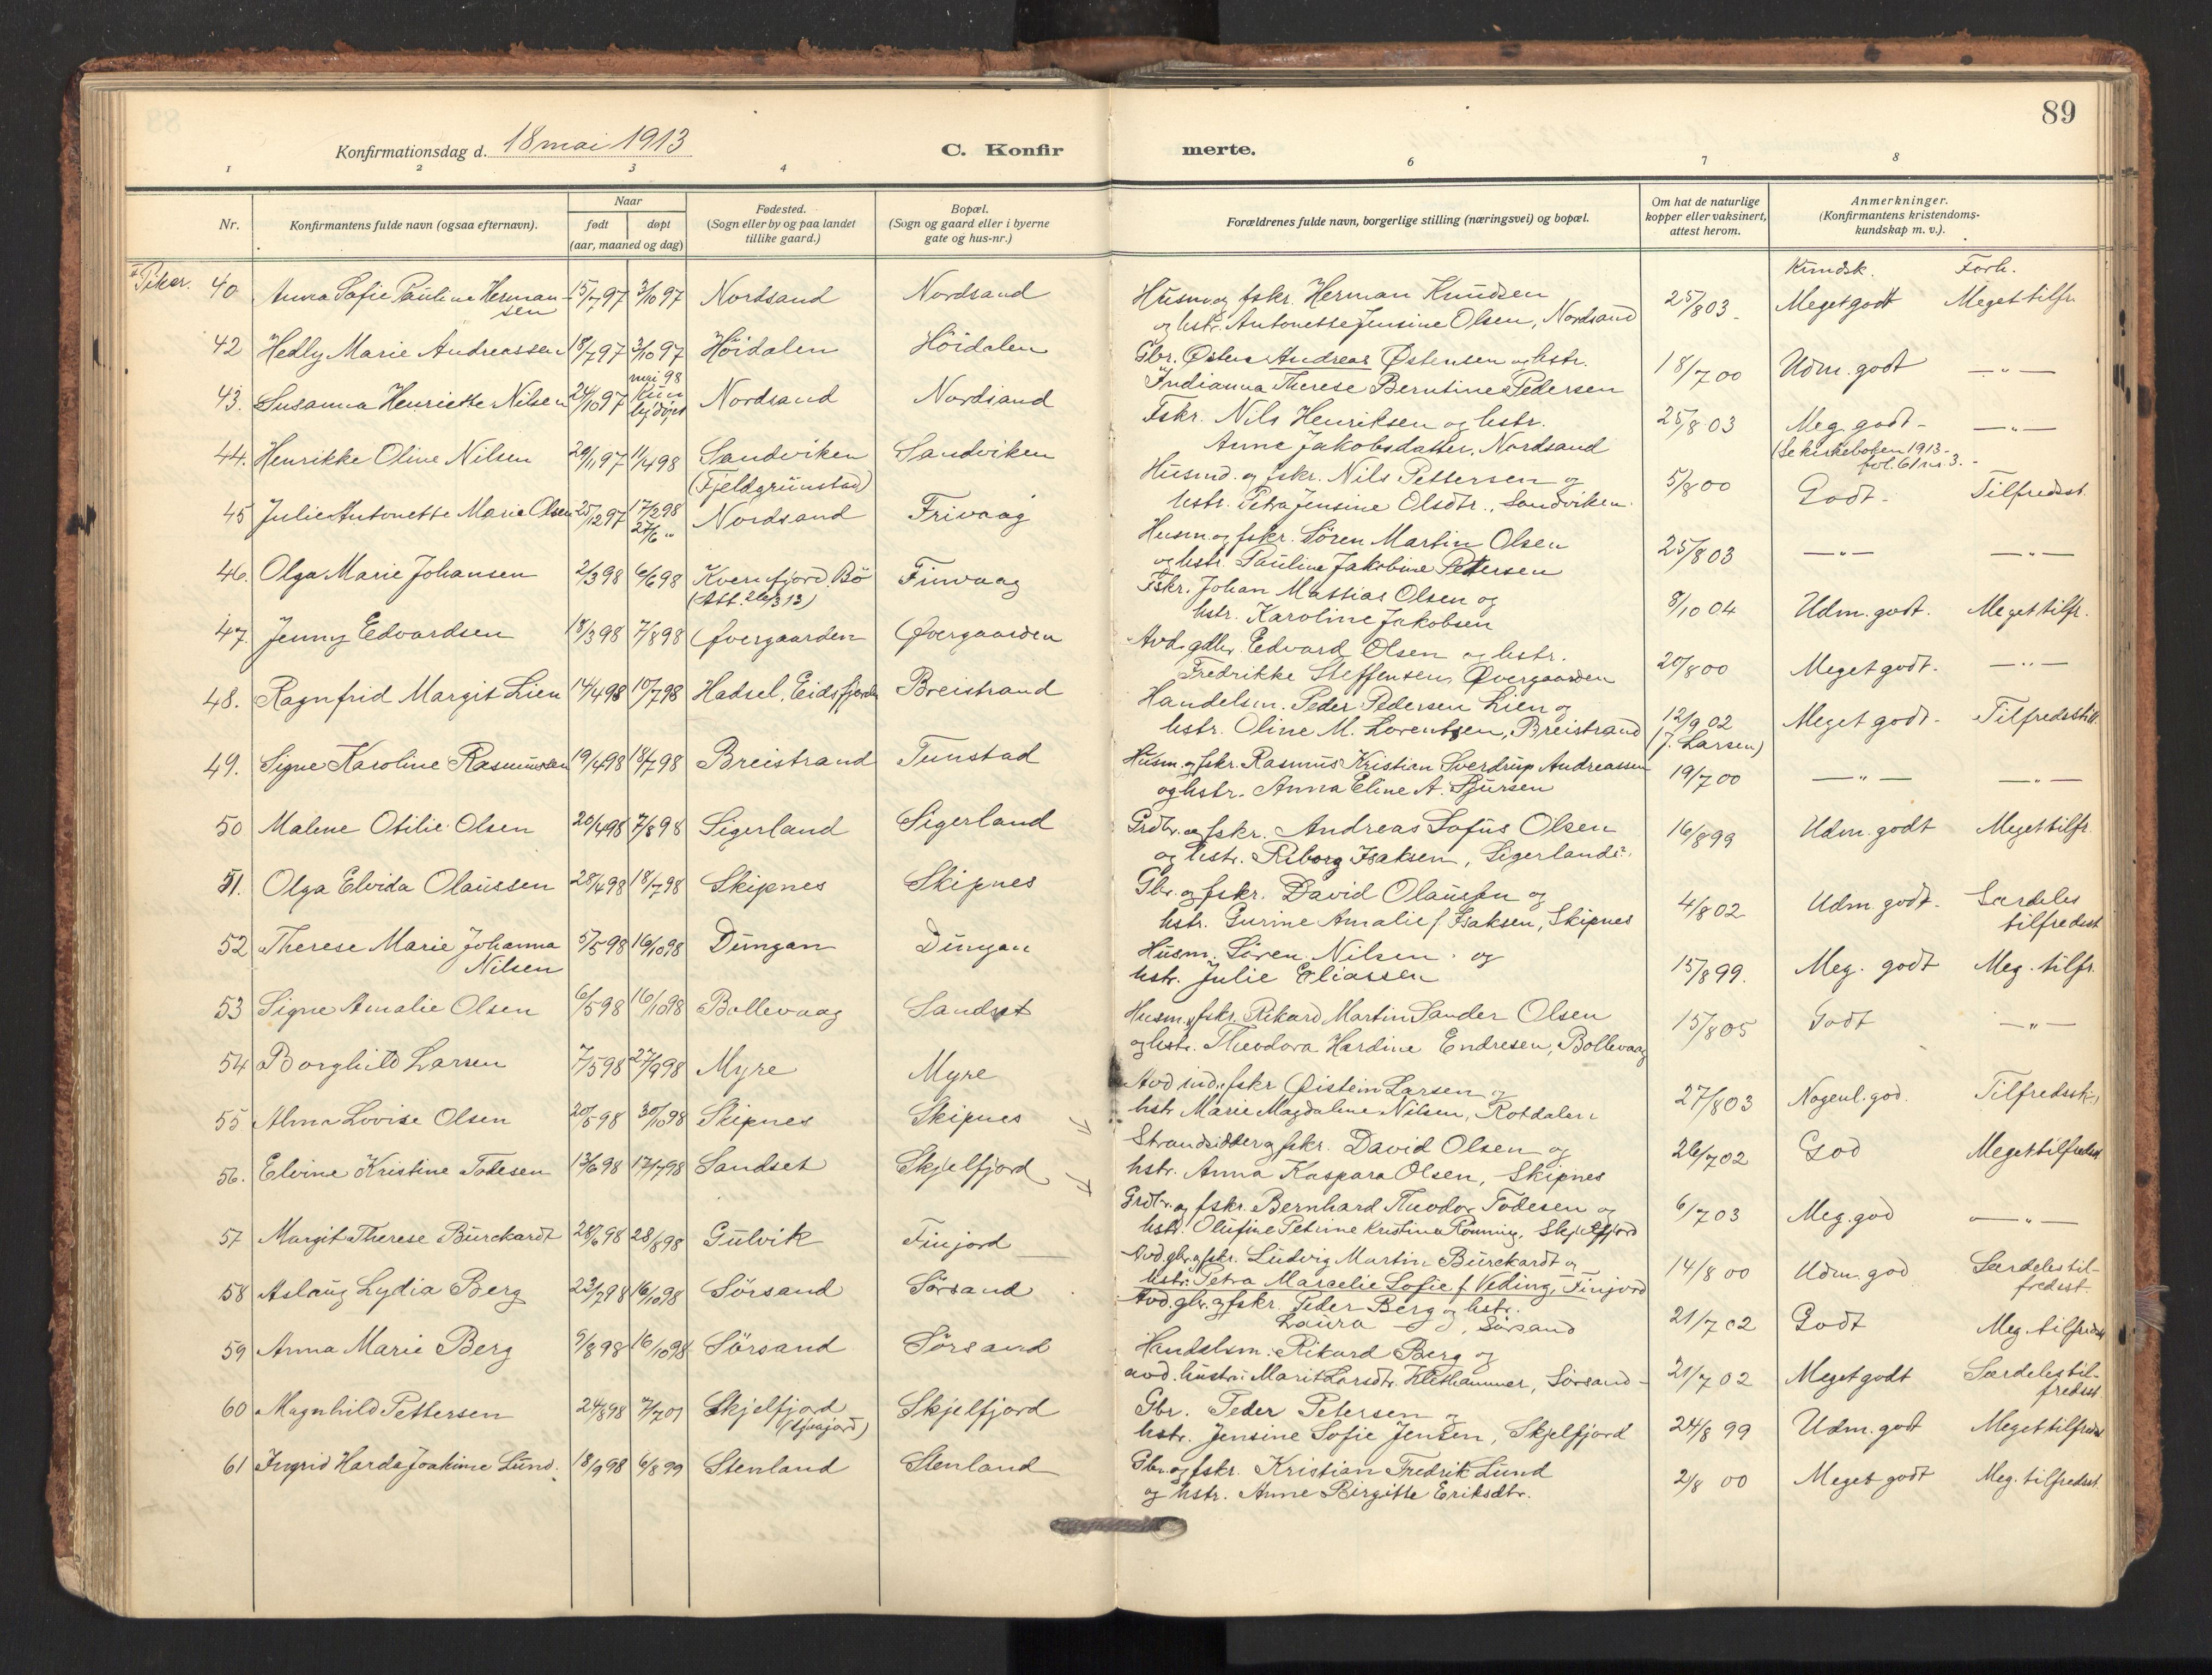 89
Konfirmationsdag d. 18 mai 1913
C. Konfirmerte.
1 2 3 4 5 6 7 8
Nr.
Konfirmantens fulde navn (ogsaa efternavn).
Naar
født døpt
(aar, maaned og dag)
Fødested.
(Sogn eller by og paa landet
tillike gaard.)
Bopæl.
(Sogn og gaard eller i byerne
gate og hus-nr.)
Forældrenes fulde navn, borgerlige stilling (næringsvei) og bopæl.
Om hat de naturlige
kopper eller vaksinert,
attest herom.
Anmerkninger.
(Konfirmantens kristendoms-
kundskap m. v.).
Kundsk. Forh.
Piker. 40 Anna Sofie Pauline Herman- 15/7 97 3/10 97 Nordsand Nordsand
sen
Husm. og fskr. Herman Knudsen
og hstr. Antonette Jensine Olsen, Nordsand 25/8 03 Meget godt Meget tilfr.
42 Hedly Marie Andreassen 18/7 97 3/10 97 Höidalen Höidalen
Gbr. Østen Andreas Østensen og hstr.
Indianna Therese Berntine Pedersen 18/7 00 Udm. godt — " —
43. Susanna Henriette Nilsen 24/10 97 mai 98 Nordsand Nordsand
Fskr. Nils Henriksen og hstr.
Anne Jakobsdatter, Nordsand 25/8 03 Meg. godt - — " —
(Se kirkeboken 1913 -
fol. 61 nr. 3. -
44. Henrikke Oline Nilsen 20/11 97 11/4 98 Sandviken Sandviken
(Fjeldgrunstad)
Husmd. og fskr. Nils Pettersen og
hstr. Petra Jensine Olsdtr., Sandviken. 5/8 00 Godt - Tilfredsst.
45 Julie Antonette Marie Olsen 25/12 97 17/2 98 Nordsand Frivaag
27/6 "
Husm og fskr. Sören Martin Olsen
og hstr. Pauline Jakobine Petersen 25/8 03 — " — — " —
46. Olga Marie Johansen 2/3 98 6/6 98 Kvernfjord. Bö Finvaag
(Att. 26/3 13)
Fskr. Johan Mattias Olsen og
hstr. Karoline Jakobsen 8/10 04 Udm. godt. Meget tilfr.
47. Jenny Edvardsen 18/3 98 7/8 98 Øvergaarden Øvergaarden
Avd. gdbr. Edvard Olsen og hstr.
Fredrikke Steffensen, Øvergaarden 20/8 00 Meget godt. — " —
48. Ragnfrid Margit Lien 14/4 98 10/7 98 Hadsel, Eidsfjorden Breistrand
Handelsm. Peder Pedersen Lien og
hstr. Oline M. Lorentsen, Breistrand 12/9 02 Meget godt - Tilfredsstill.
(J. Larsen)
49. Signe Karoline Rasmussen 19/4 98 18/7 98 Breistrand Tunstad
Husm. og fskr. Rasmus Kristian Sverdrup Andreassen
og hstr. Anna Eline A. Sjursen 19/7 00 — " — — " —
50 Malene Otilie Olsen 20/4 98 7/8 98 Sigerland Sigerland
Grdbr. og fskr. Andreas Sofus Olsen
og hstr. Riborg Isaksen, Sigerland. 16/8 99 Udm. godt Meget tilfr.
51. Olga Elvida Olaussen 28/4 98 18/7 98 Skipnes Skipnes
Gbr. og fskr. David Olaussen og
hstr. Gurine Amalie f. Isaksen, Skipnes 4/8 02 Udm. godt. Særdeles
tilfredsst
52 Therese Marie Johanna 5/5 98 16/10 98 Dungan Dungan
Nilsen
Husm. Sören Nilsen og
hstr. Julie Eliassen 15/8 99. Meg. godt Meg. tilfr.
53 Signe Amalie Olsen 6/5 98 16/10 98 Bollevaag Sandset
Husm. og fskr. Rikard Martin Sander Olsen
og hstr. Theodora Hardine Endresen, Bollevaag 15/8 05 Godt — " —
54 Borghild Larsen 7/5 98 27/9 98 Myre Myre
Avd ind. fskr Øistein Larsen og
hstr Marie Magdalene Nilsen, Rotdalen 27/8 03 Nogenl. god. Tilfredsst.
55 Alma Lovise Olsen 20/5 98 30/10 98 Skipnes Skipnes
Strandsidder og fskr. David Olsen og
hstr. Anna Kaspara Olsen, Skipnes 26/7 02 God Meget tilfredsst
56. Elvine Kristine Todesen 13/6 98 17/7 98 Sandset Skjelfjord
Grdbr. og fskr. Bernhard Theodor Todesen og
hstr. Olufine Petrine Kristine Rönning, Skjelfjord 6/7 03 Meg. god — " —
57 Margit Therese Burckardt 28/6 98 28/8 98 Gulvik Finjord
Avd. gbr. og fskr. Ludvig Martin Burckardt og
hstr. Petra Marcelie Sofie f. Veding, Finjord 14/8 00 Udm. god Særdeles til-
fredsst.
58 Aslaug Lydia Berg 23/7 98 16/10 98 Sörsand Sörsand
Avd. gbr. og fskr. Peder Berg og hstr.
Laura, Sörsand 21/7 02 Godt Meg. tilfredsst
59 Anna Marie Berg 9/8 98 16/10 98 Sörsand Sörsand
Handelsm. Rikard Berg og
avd. hustru Marit Larsdtr. Klethammer, Sörsand - 21/7 02 Meget godt Særdeles til-
fredsst.
60 Magnhild Pettersen 24/8 98 7/7 01 Skjelfjord Skjelfjord
Gbr. Peder Petersen og
hstr. Jensine Sofie Jensen, Skjelfjord 24/8 99 Udm. godt Meget tilfredsst
61 Ingrid Harda Joakime Lund. 18/9 98 6/8 99 Stenland Stenland
Gbr. og fskr. Kristian Fredrik Lund
og hstr. Anne Birgitte Eriksdtr. 2/8 00 Meget godt Meg. tilfredsst.